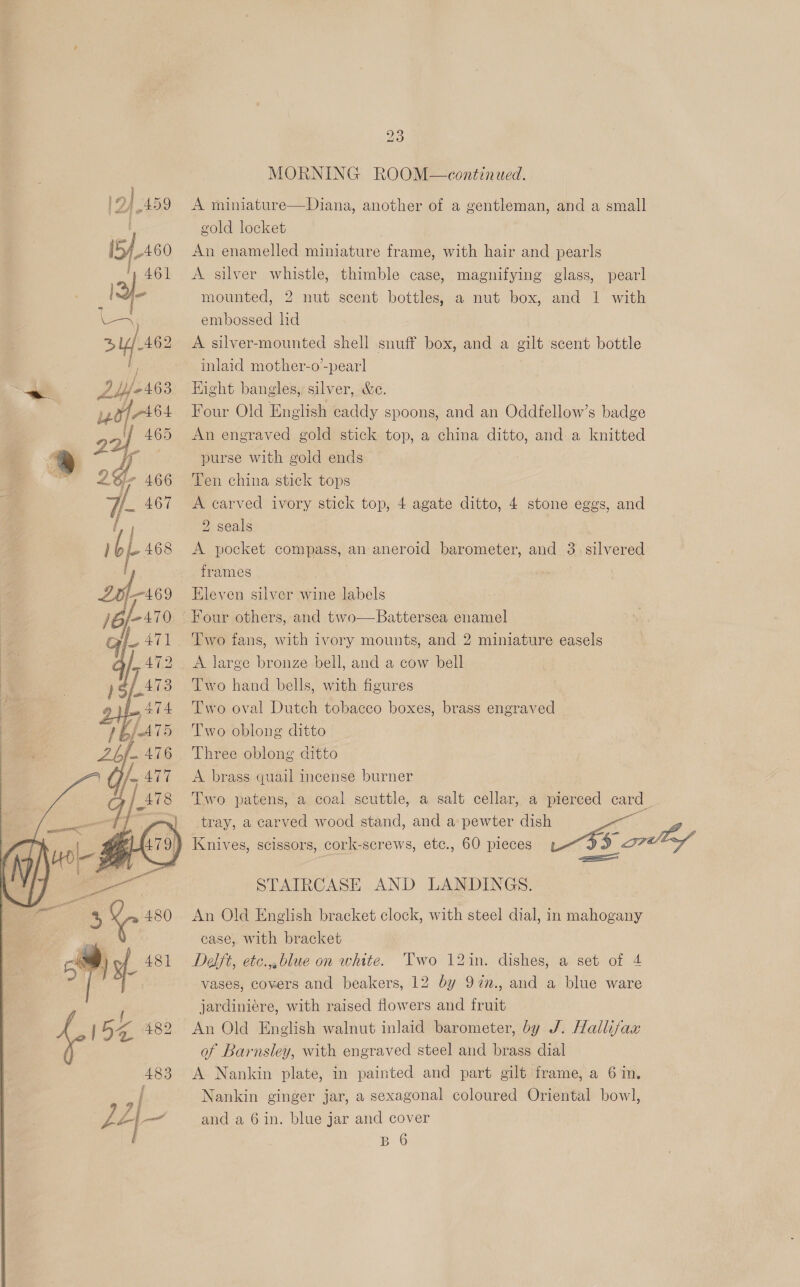 23
MORNING ROOM—continued.
12/- 459 A miniature—Diana, another of a gentleman, and a small
gold locket
15/- 460 An enamelled miniature frame, with hair and pearls
13/- 461 A silver whistle, thimble case, magnifying glass, pearl
mounted, 2 nut scent bottles, a nut box, and 1 with
embossed lid
462 A silver-mounted shell snuff box, and a gilt scent bottle
inlaid mother-o'-pearl
463 Eight bangles, silver, &c.
464 Four Old English caddy spoons, and an Oddfellow's badge
22/ 465 An engraved gold stick top, a china ditto, and a knitted
purse with gold ends
466 Ten china stick tops
7/- 467 A carved ivory stick top, 4 agate ditto, 4 stone eggs, and
2 seals
16/- 468 A pocket compass, an aneroid barometer, and 3 silvered
frames
469 Eleven silver wine labels
16/- 470 Four others, and two—Battersea enamel
471 Two fans, with ivory mounts, and 2 miniature easels
472 A large bronze bell, and a cow bell
473 Two hand bells, with figures
474 Two oval Dutch tobacco boxes, brass engraved
475 Two oblong ditto
26/- 476 Three oblong ditto
477 A brass quail incense burner
478 Two patens, a coal scuttle, a salt cellar, a pierced card
tray, a carved wood stand, and a pewter dish
40/- 479 Knives, scissors, cork-screws, etc., 60 pieces 55 only
STAIRCASE AND LANDINGS.
480 An Old English bracket clock, with steel dial, in mahogany
case, with bracket
481 Delft, etc., blue on white. Two 12in. dishes, a set of 4
vases, covers and beakers, 12 by 9in., and a blue ware
jardinière, with raised flowers and fruit
482 An Old English walnut inlaid barometer, by J. Hallifax
of Barnsley, with engraved steel and brass dial
483 A Nankin plate, in painted and part gilt frame, a 6in.
Nankin ginger jar, a sexagonal coloured Oriental bowl,
22/- and a 6in. blue jar and cover
B 6